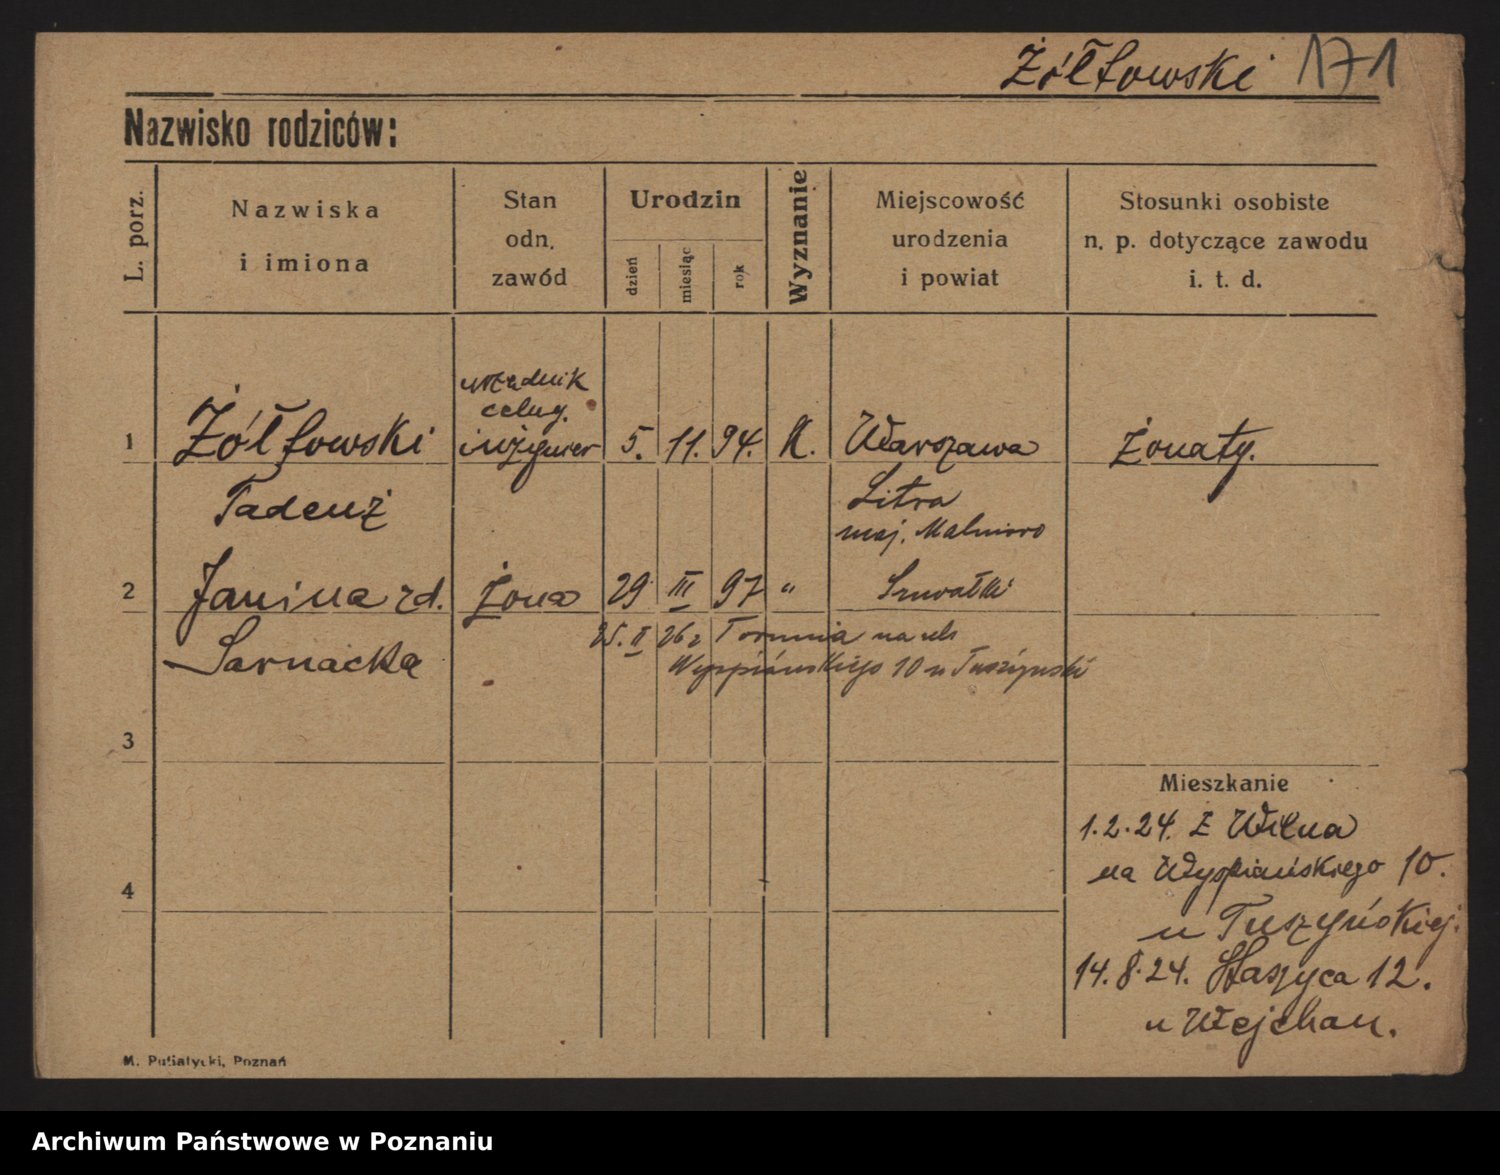 Żółtowski 171
Nazwisko rodziców:
L. porz.
Nazwiska
i imiona
Stan
odn.
zawód
Urodzin
dzień
miesiąc
rok
Wyznanie
Miejscowość
urodzenia
i powiat
Stosunki osobiste
n. p. dotyczące zawodu
i. t. d.
urzędnik
1 Żółtowski inżynier 5. 11. 94. K. Warszawa Żonaty.
Tadeusz Litwa
maj.
2 Janina rd. Żona 29 III 97 " Suwałki
Sarnacka 25. II 26 z Torunia na ul.
Wyspiańskiego 10 u Tuszyński
3
Mieszkanie
1.2.24. Z Wilna
na Wyspiańskiego 10.
u Tuszyńskiej.
14.8.24. Staszyca 12.
u Wejchan.
4
M. Putiatycki, Poznań
Archiwum Państwowe w Poznaniu